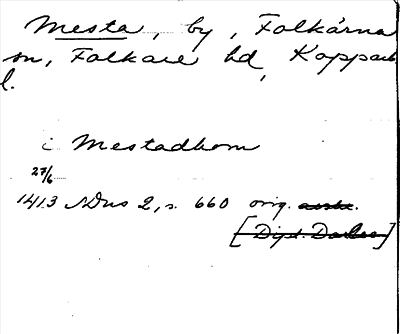 Mesta, by, Folkärna
sn, Folkare hd, Kopparb
l.
i Mestadhom
27/6
1413 SDns 2, s. 660 orig. avskr.
[Dipl. Dalec]